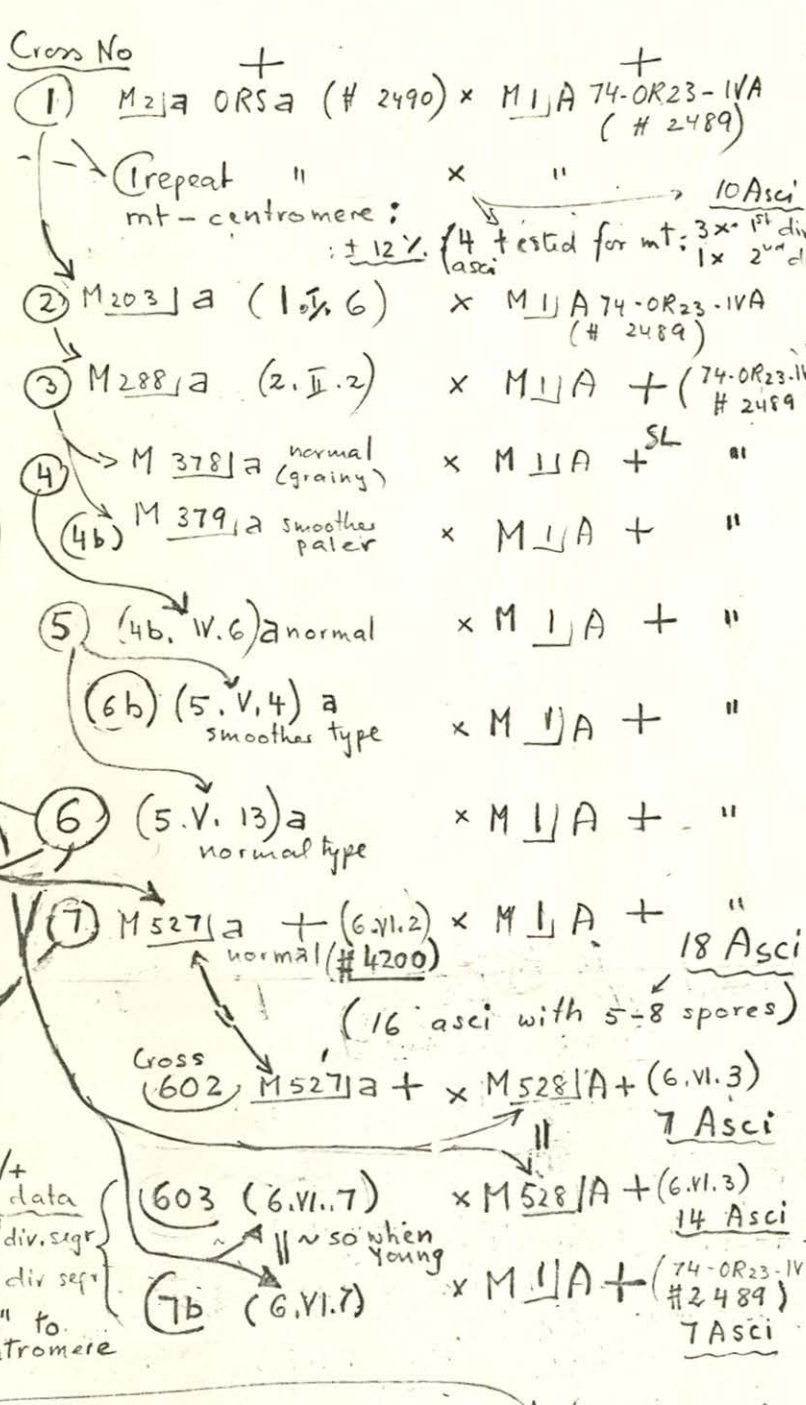 Cross No + +
① M2 a ORSa (# 2490) × M 1 A 74-OR23-IVA
( # 2489)
(1repeat " × "
10 Asci
mt - centromere :
: ± 12 % (4 asci tested for mt: 3× 1st div
1× 2nd d
② M203 a (1.V.6) × M 1 A 74-OR23-IVA
(# 2489)
③ M288 a (2.II.2) × M 1 A + (74-OR23.IV
# 2489
④ M 378 a normal (grainy) × M 1 A + SL "
(4b) M 379 a smoother paler × M 1 A + "
⑤ (4b. IV.6) a normal × M 1 A + "
(6b) (5.V.4) a × M 1 A + "
smoother type
⑥ (5.V.13) a × M 1 A + "
normal type
⑦ M527 a + (6.VI.2) × M 1 A + "
normal (#4200)
18 Asci
(16 asci with 5-8 spores)
Cross
602 M527 a + × M528 A + (6.VI.3)
7 Asci
603 (6.VI.7) × M528 A + (6.VI.3)
14 Asci
|| ~ so when young
7b (6.VI.7) × M 1 A + (74-OR23-IV
#2489)
7 Asci
/+
data
div. segr
div segr
" to
tromere